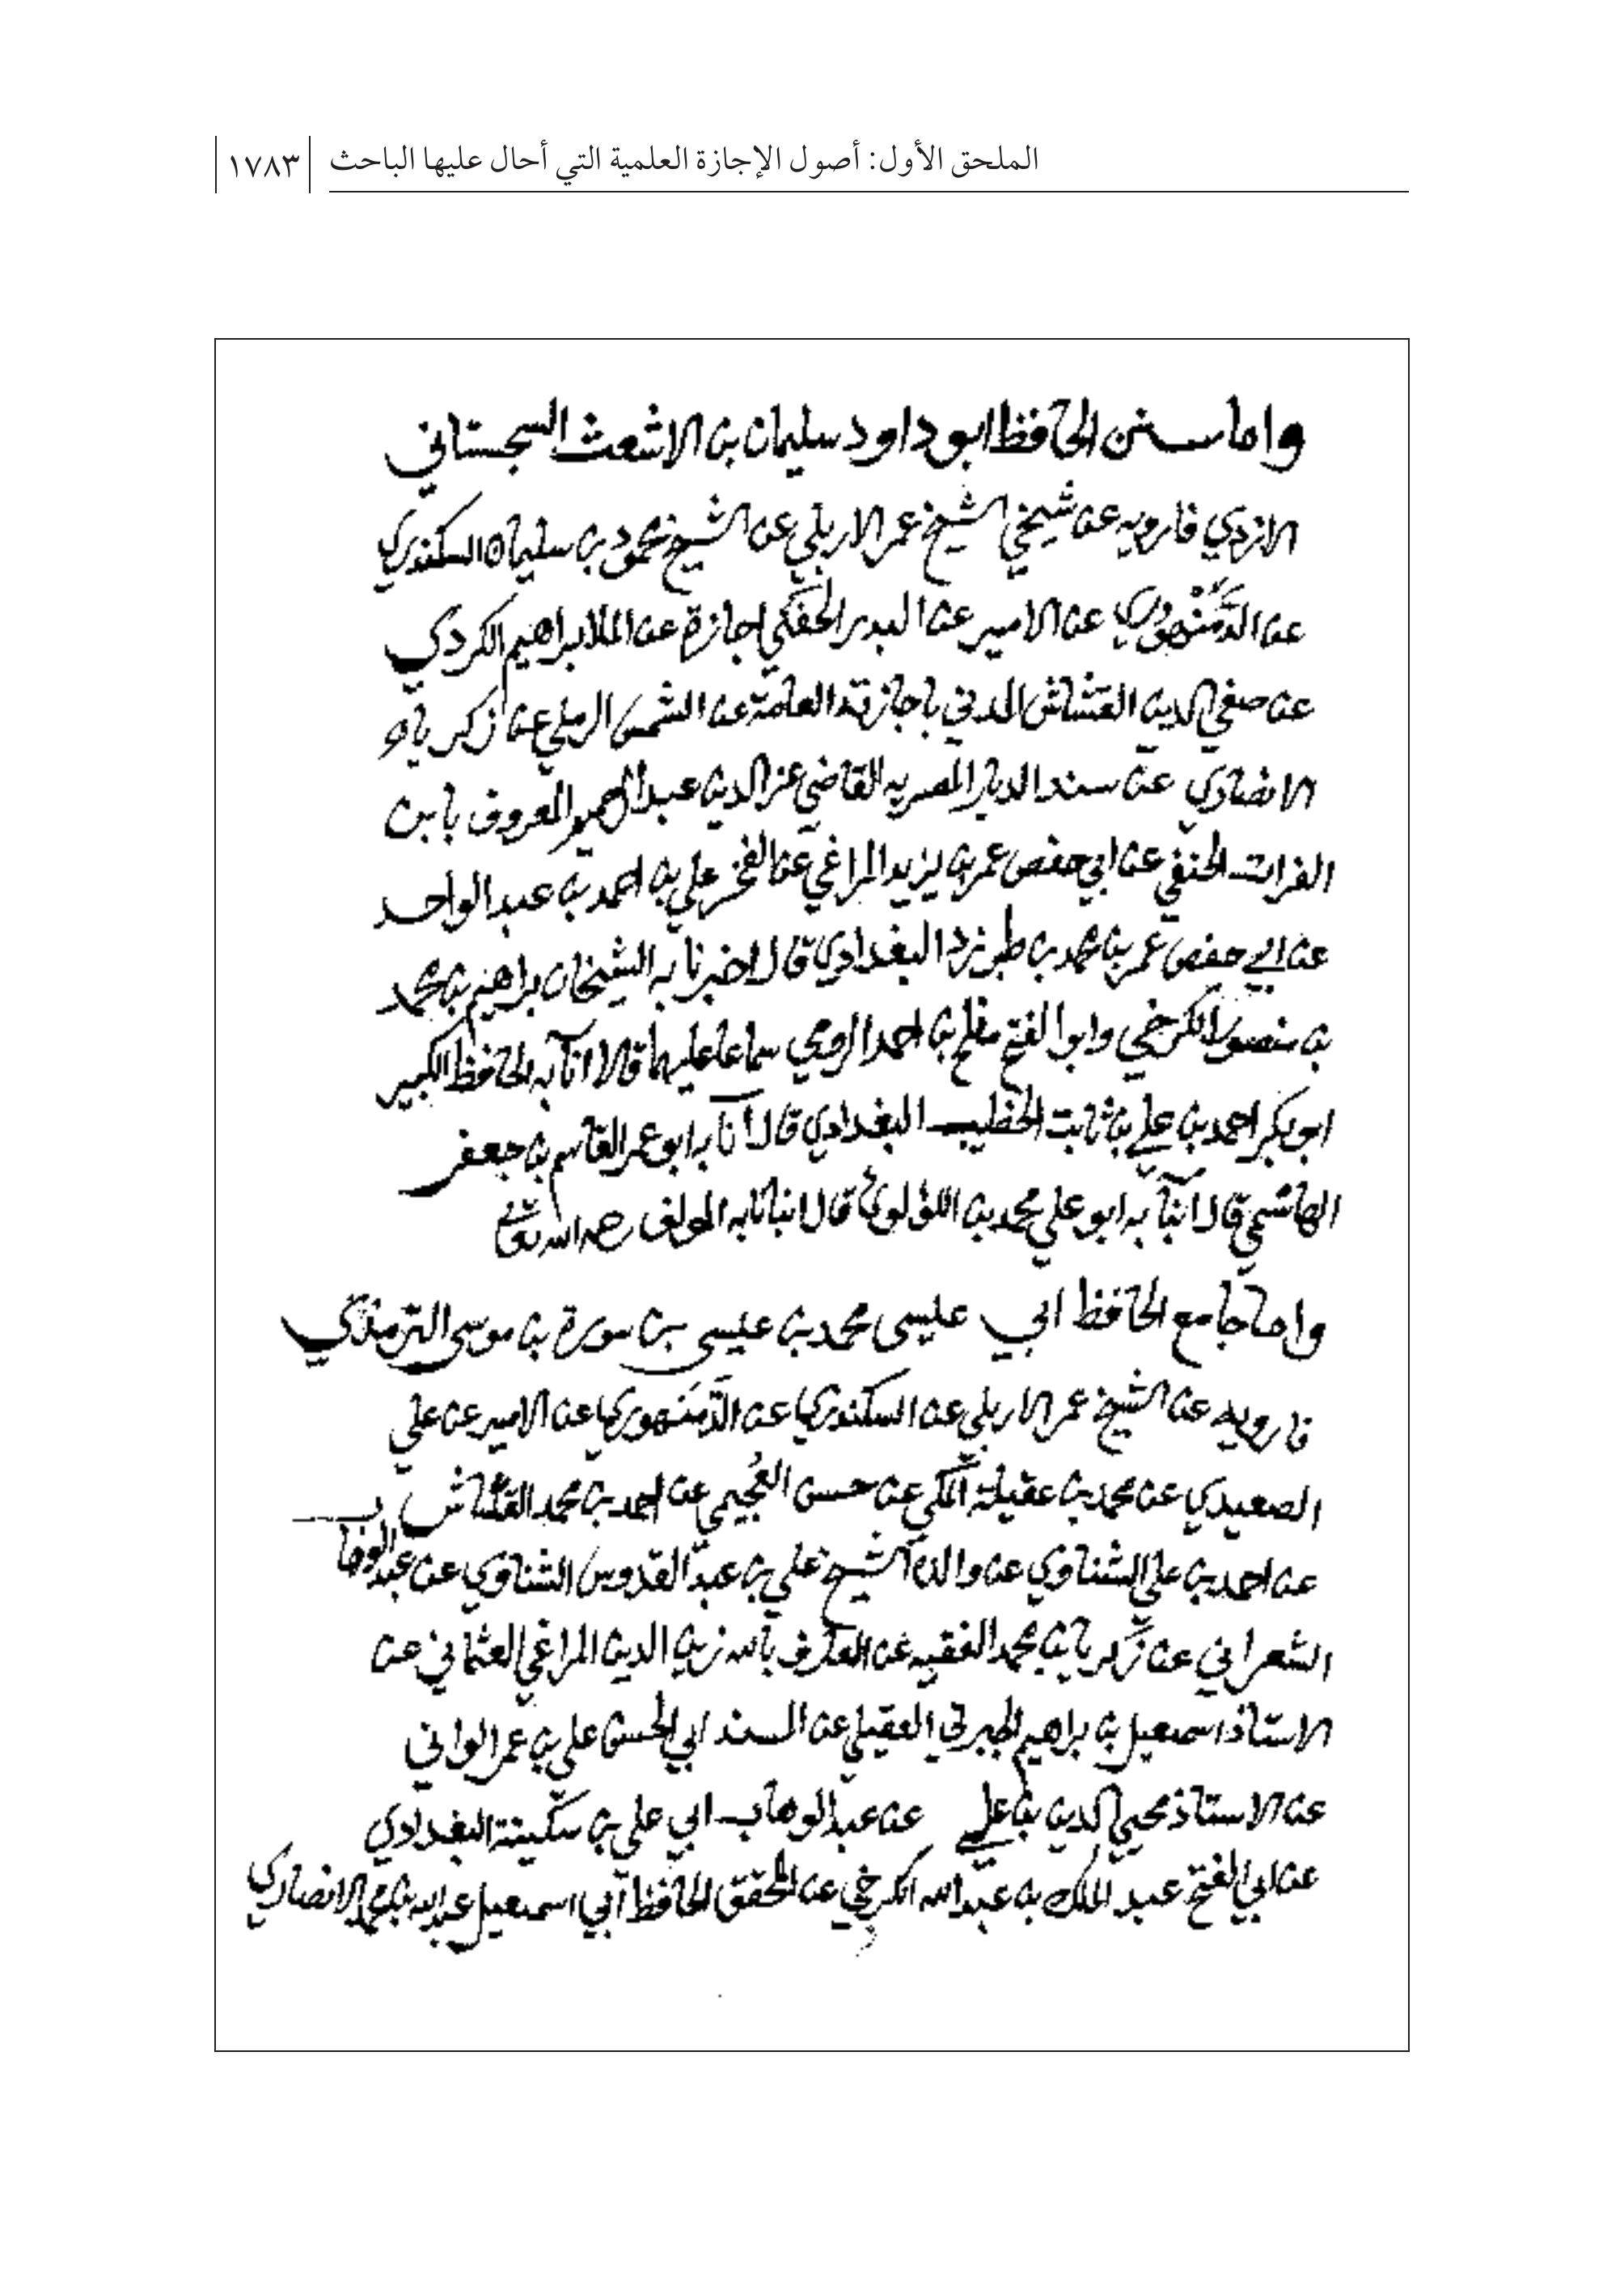 الملحق الأول: أصول الإجازة العلمية التي أحال عليها الباحث
١٧٨٣
واما سنن الحافظ ابو داود سليمان بن الاشعث السجستاني
الازدي فارويه عن شيخي الشيخ عمر الاربلي عن الشيخ محمود بن سليمان السكندري
عن الدَّمَنْهوري عن الامير عن البدر الحفني اجازة عن الملا ابراهيم الكردي
عن صفي الدين القشاش المدني باجازته العامة عن الشمس الرملي عن زكريا
الانصاري عن سند الديار المصريه القاضي عز الدين عبد الرحيم المعروف بابن
الفرات الحنفي عن ابي حفص عمر بن يزيد المراغي عن الفخر علي بن احمد بن عبد الواحد
عن ابي حفص عمر بن محمد بن طبرزد البغدادي قال اخبرنا به الشيخان براهيم بن محمد
بن منصور الكرخي وابو الفتح مفلح بن احمد الرومي سماعا عليهما قالا انا به الحافظ الكبير
ابو بكر احمد بن علي بن ثابت الخطيب البغدادي قال انا به ابو عمر القاسم بن جعفر
الهاشمي قال انبا به ابو علي محمد بن اللؤلوئ قال انبانا به المولف رحمه الله تعالى
واما جامع الحافظ ابي عليسى محمد بن عيسى بن سورة بن موسى الترمذي
فارويه عن الشيخ عمر الاربلي عن السكندري عن الدَّمَنْهوري عن الامير عن علي
الصعيدي عن محمد بن عقيلة المكي عن حسن العُجيمي عن احمد بن محمد القشاش
عن احمد بن علي الشناوي عن والده الشيخ علي بن عبد القدوس الشناوي عن عبد الوهاب
الشعراني عن زكريا بن محمد الفقيه عن العارف بالله زين الدين المراغي العثماني عن
الاستاذ اسمعيل بن براهيم الجبرتي العقيلي عن المسند ابي الحسن علي بن عمر الواني
عن الاستاذ محيي الدين بن علي عن عبد الوهاب ابي علي بن سكينة البغدادي
عن ابي الفتح عبد الملك بن عبد الله الكرخي عن المحقق الحافظ ابي اسمعيل عبد الله بن محمد الانصاري